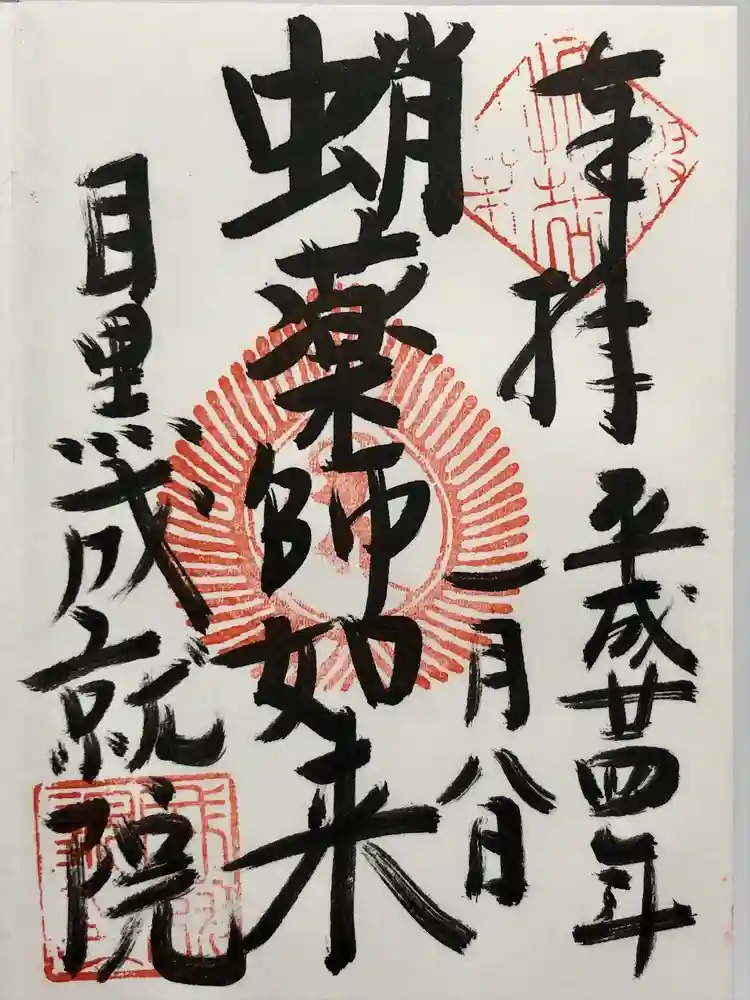 奉拝 平成廿四年
一月八日
蛸薬師如来
目黒成就院